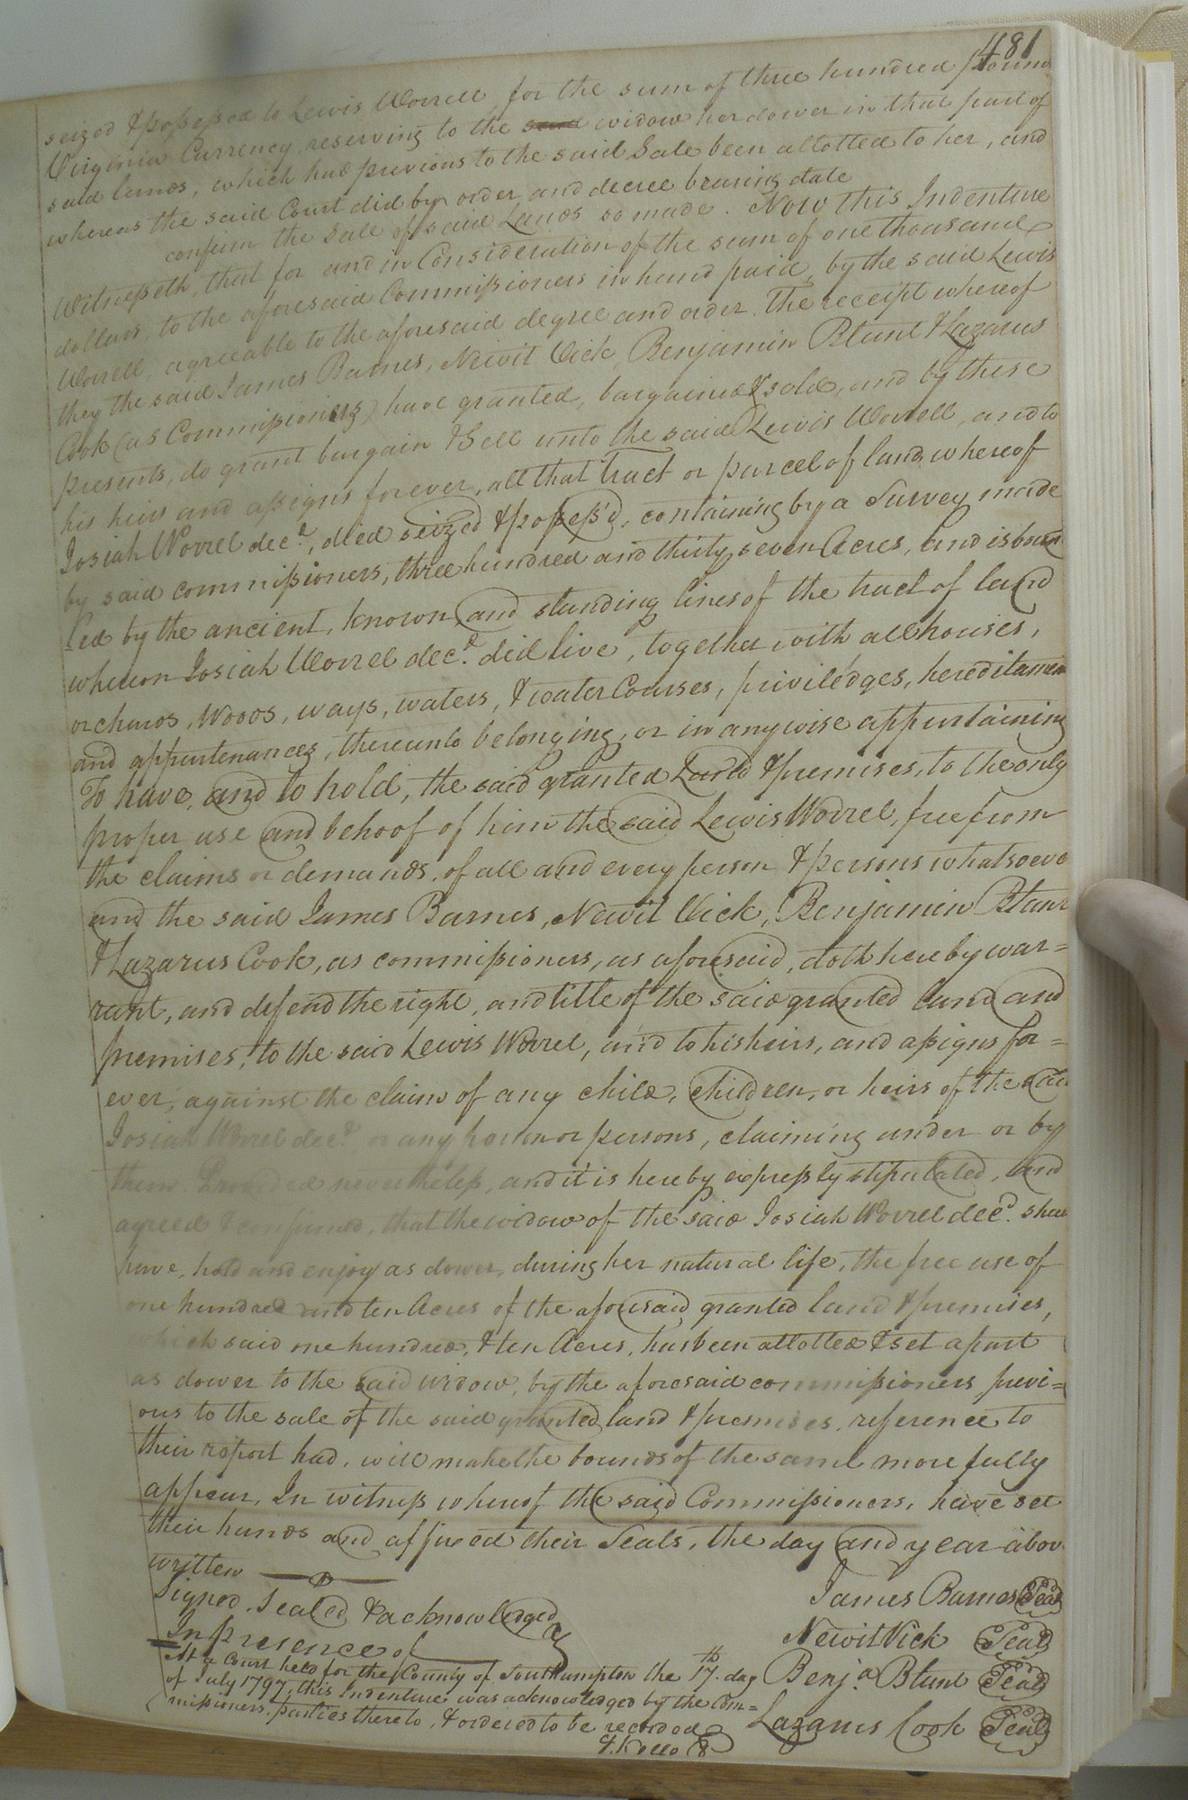 481
seized & possessed to Lewis Worrell, for the sum of three hundred pound
Virginia Currency, reserving to the said widow her dower in that part of
said lands, which had previous to the said Sale been allotted to her, and
whereas the said Court did by order and decree bearing date
confirm the Sale of said Lands so made. Now this Indenture
Witnesseth, that for and in Consideration of the sum of one thousand
dollars, to the aforesaid Commissioners in hand paid, by the said Lewis
Worrell, agreeable to the aforesaid degree and order, the receipt whereof
they the said James Barnes, Newit Vick, Benjamin Blunt & Lazarus
Cook (as Commissioners) have granted, bargained & sold, and by these
presents, do grant bargain & Sell unto the said Lewis Worrell, and to
his heirs and assigns forever, all that tract or parcel of land whereof
Josiah Worrel decd, died seized & possess'd, containing by a Survey made
by said commissioners, three hundred and thirty seven Acres, and is boun
ded by the ancient, known and standing lines of the tract of land
whereon Josiah Worrel decd. did live, together with all houses,
orchards, woods, ways, waters, & water Courses, priviledges, hereditamen
and appurtenances, thereunto belonging, or in anywise appurtaining
To have, and to hold, the said granted Land & premises, to the only
proper use and behoof of him the said Lewis Worrel, free from
the claims or demands, of all and every person & persons whatsoeve
and the said James Barnes, Newit Vick, Benjamin Blunt
& Lazarus Cook, as commissioners, as aforesaid, doth hereby war=
rant, and defend the right, and title of the said granted land and
premises, to the said Lewis Worrel, and to his heirs, and assigns for=
ever, against the claim of any child, children, or heirs of the said
Josiah Worrel decd. or any person or persons, claiming under or by
them Provided nevertheless, and it is hereby expressly stipulated, and
agreed & confirmed, that the widow of the said Josiah Worrel decd. shall
have, hold and enjoy as dower, during her natural life, the free use of
one hundred and ten Acres of the aforesaid granted land & premises,
which said one hundred, & ten Acres, has been allotted & set apart
as dower to the said widow, by the aforesaid commissioners previ=
ous to the sale of the said granted land & premises, reference to
their report had, will make the bounds of the same more fully
appear, In witness whereof the said Commissioners, have set
their hands and affixed their Seals, the day and year abov
written
Signed, Sealed & acknowledged
In presence of
James Barnes Seal
Newit Vick Seal
Benja. Blunt Seal
Lazarus Cook Seal
At a Court held for the County of Southampton the 17th. day
of July 1797, this Indenture was acknowledged by the Com=
missioners, parties thereto, & ordered to be recorded